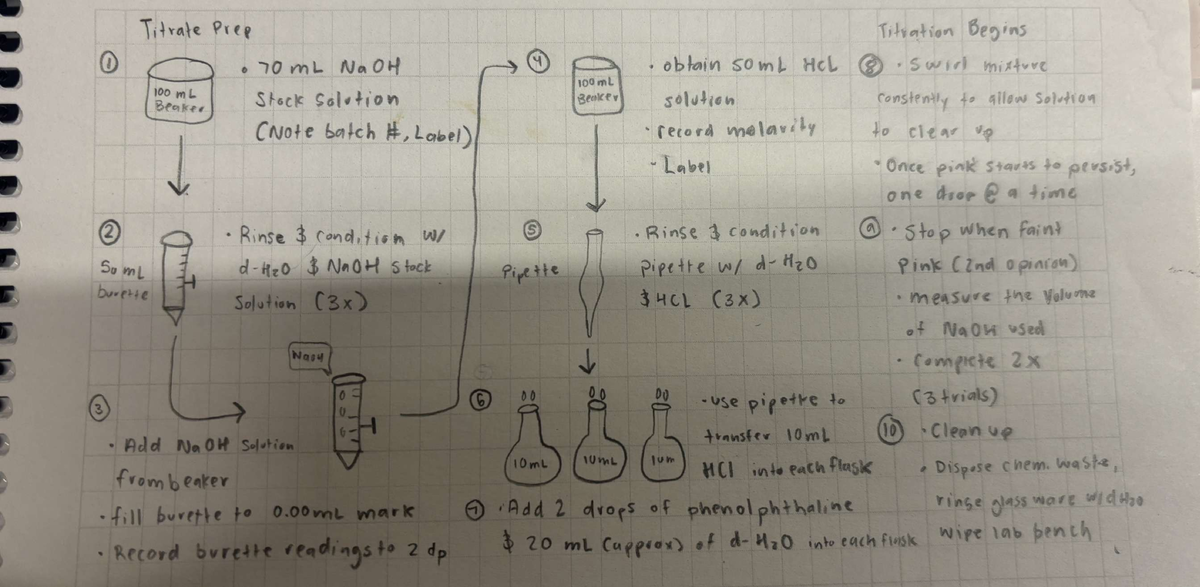 Titrate Prep
①
100 mL
Beaker
• 70 mL NaOH
Stock Solution
(Note batch #, Label)
②
50 mL
burette
• Rinse & condition w/
d-H₂O & NaOH stock
Solution (3x)
③
NaOH
• Add NaOH solution
from beaker
• fill burette to 0.00mL mark
• Record burette readings to 2 dp
④
100 mL
Beaker
• obtain 50mL HCL
solution
• record molarity
- Label
⑤
Pipette
• Rinse & condition
pipette w/ d-H₂O
& HCL (3x)
⑥
10mL
10mL
• use pipette to
transfer 10mL
HCl into each flask
⑦ • Add 2 drops of phenolphthaline
& 20 mL (approx) of d-H₂O into each flask
Titration Begins
⑧ • Swirl mixture
constently to allow solution
to clear up
• Once pink starts to persist,
one drop @ a time
⑨ • Stop when faint
pink (2nd opinion)
• measure the volume
of NaOH used
• Complete 2x
(3 trials)
⑩ • Clean up
• Dispose chem. waste,
rinse glassware w/ dH₂O
wipe lab bench